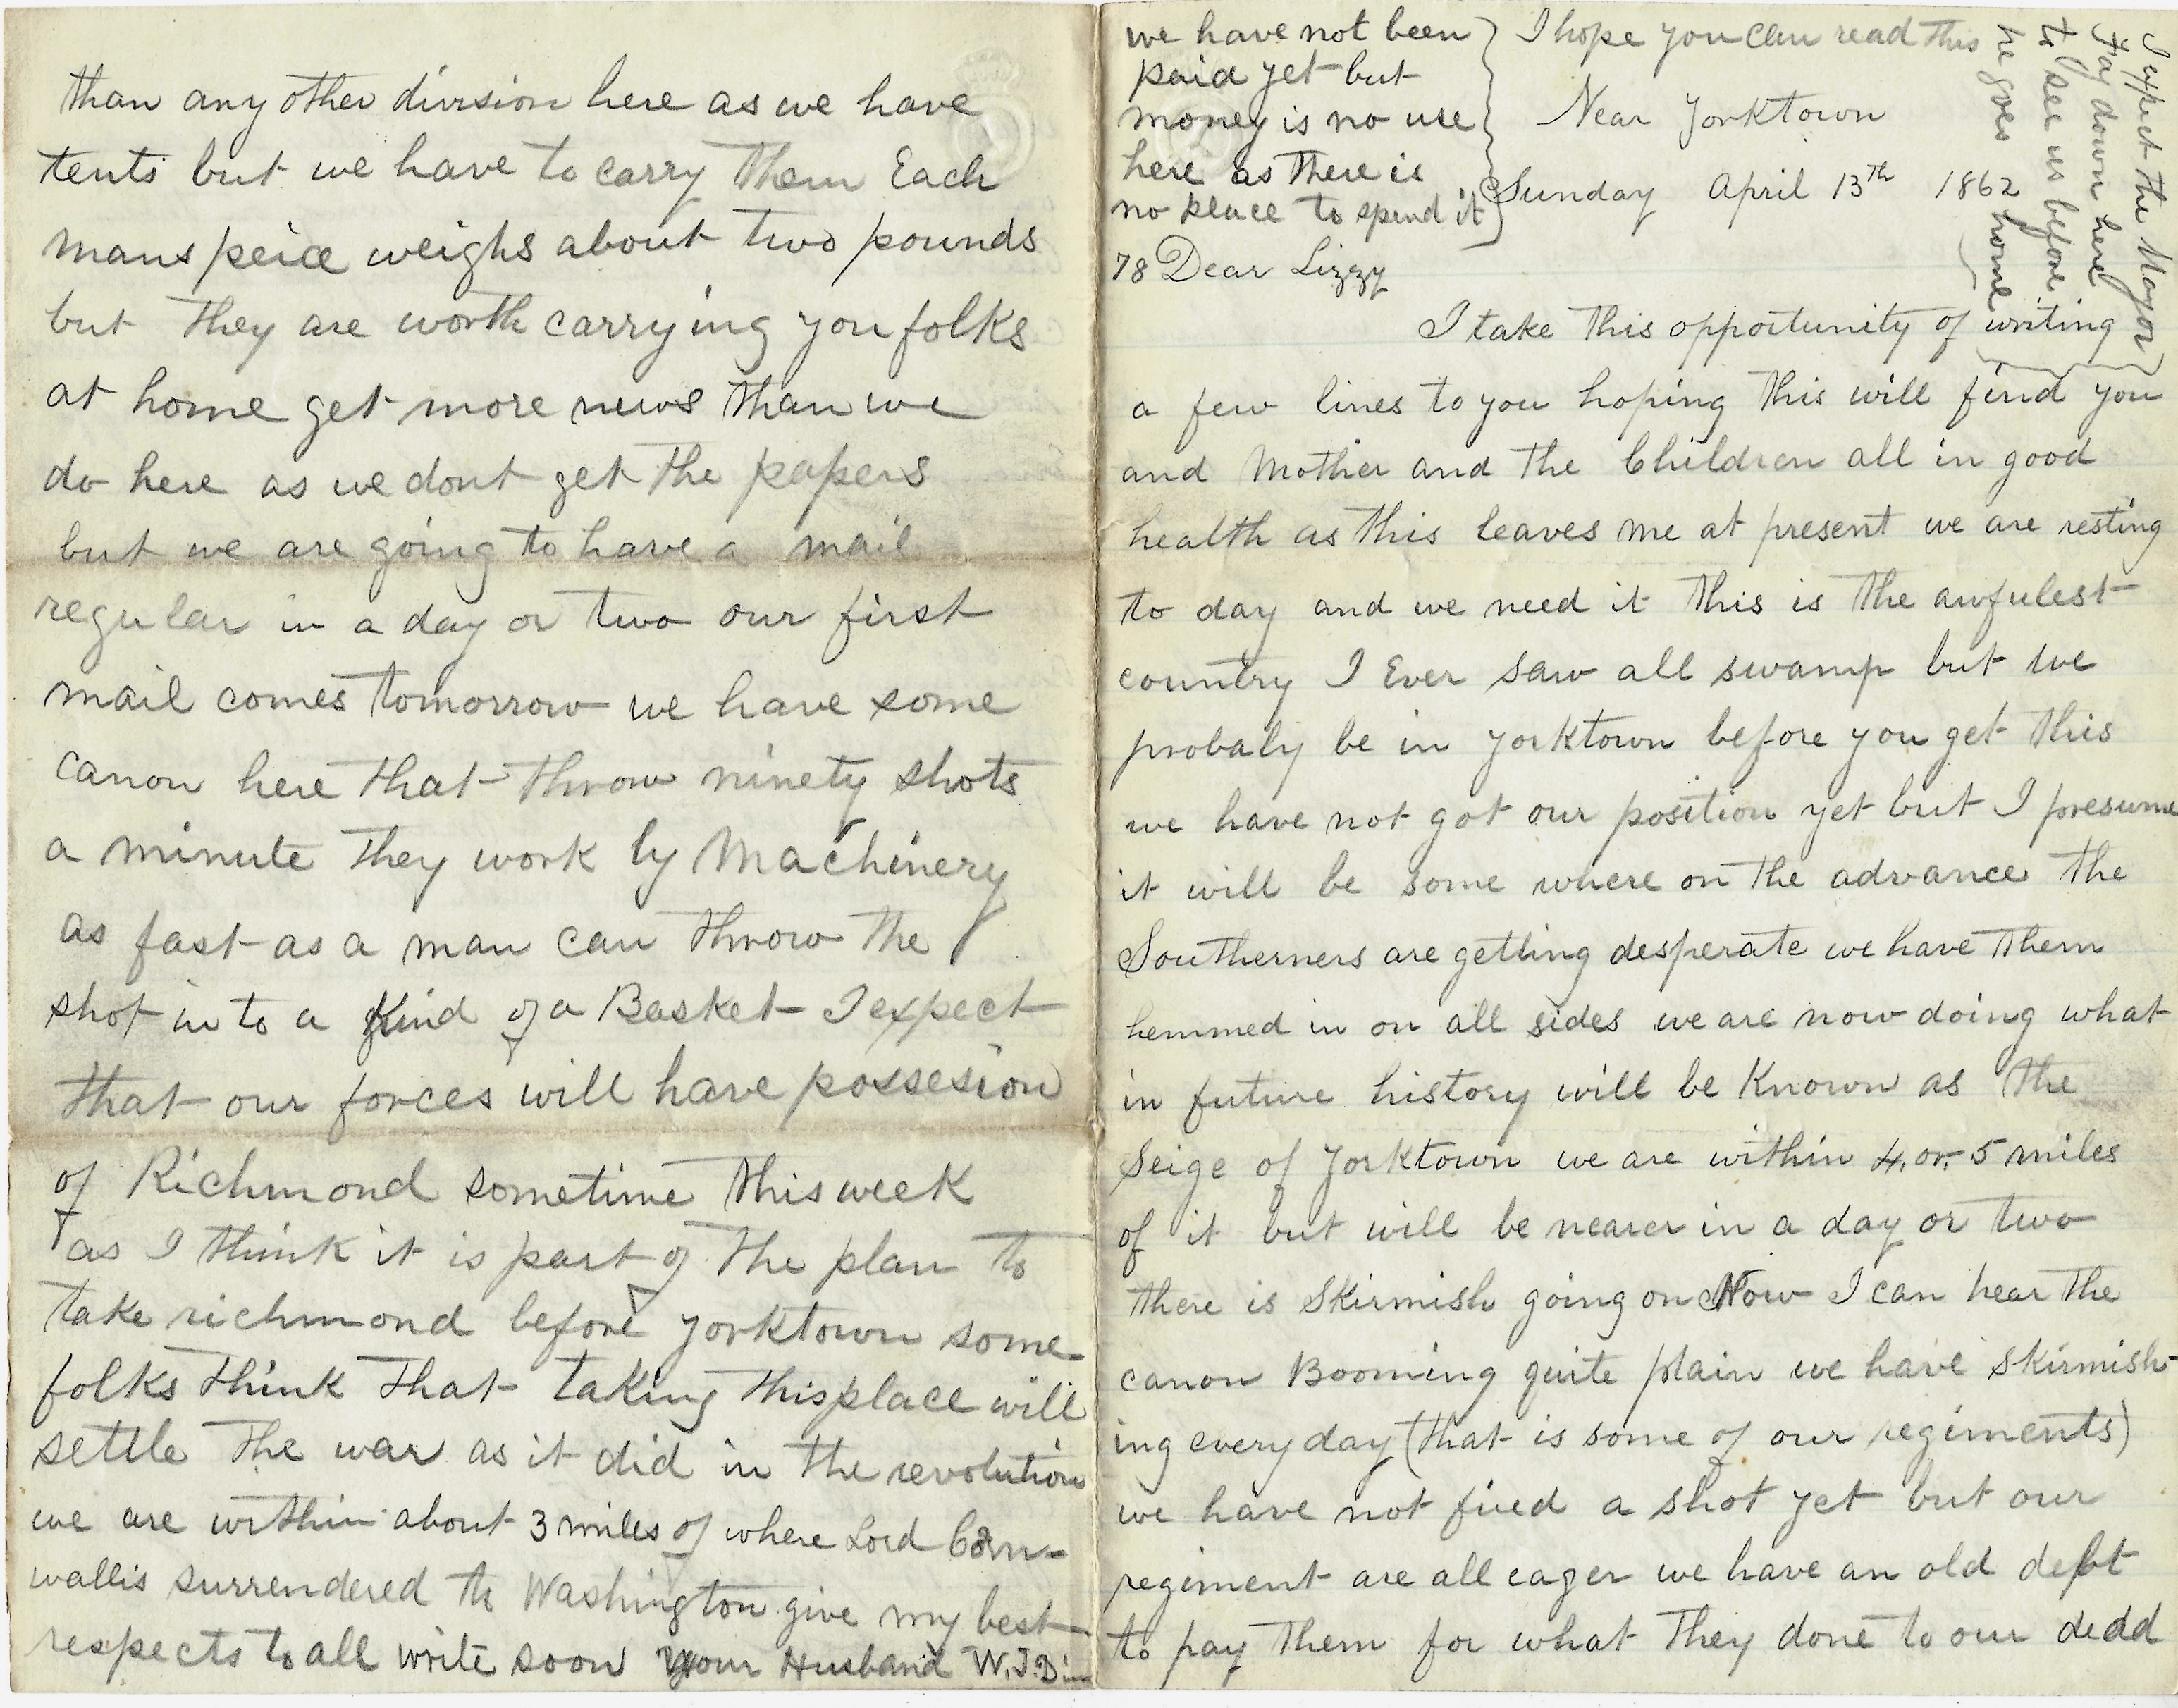 we have not been
paid yet but
money is no use
here as there is
no place to spend it
I hope you can read this
Near Yorktown
Sunday April 13th 1862
I expect the Mayor
Fay down here
to see us before
he goes
home
78 Dear Lizzy
I take this opportunity of writing
a few lines to you hoping this will find you
and Mother and the Children all in good
health as this leaves me at present we are resting
to day and we need it this is the awfulest
country I Ever saw all swamp but we
probaly be in Yorktown before you get this
we have not got our position yet but I presume
it will be some where on the advance the
Southerners are getting desperate we have them
hemmed in on all sides we are now doing what
in future history will be Known as the
Seige of Yorktown we are within 4 or 5 miles
of it but will be nearer in a day or two
there is Skirmish going on Now I can hear the
canon Booming quite plain we have skirmish-
ing every day (that is some of our regiments)
we have not fired a shot yet but our
regiment are all eager we have an old debt
to pay them for what they done to our dedd
than any other division here as we have
tents but we have to carry them Each
mans peice weighs about two pounds
but they are worth carrying you folks
at home get more news than we
do here as we dont get the papers
but we are going to have a mail
regular in a day or two our first
mail comes tomorrow we have some
canon here that throw ninety shots
a minute they work by Machinery
as fast as a man can throw the
shot in to a Kind of a Basket I expect
that our forces will have possesion
of Richmond sometime this week
as I think it is part of the plan to
take richmond before yorktown some
folks think that taking this place will
settle the war as it did in the revolution
we are within about 3 miles of where Lord Corn-
wallis surrendered to Washington give my best
respects to all write soon your Husband W.J.